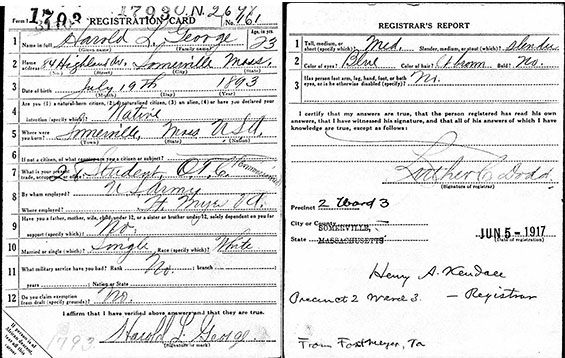 Form 1 1793 REGISTRATION CARD No. 161
1 Name in full Harold L. George Age, in yrs. 23
(Given name) (Family name)
2 Home address 84 Highland Av. Somerville Mass.
(No.) (Street) (City) (State)
3 Date of birth July 19th 1893
(Month) (Day) (Year)
4 Are you (1) a natural-born citizen, (2) a naturalized citizen, (3) an alien, (4) or have you declared your
intention (specify which)? Native
5 Where were you born? Somerville, Mass USA
(Town) (State) (Nation)
6 If not a citizen, of what country are you a citizen or subject?
7 What is your present trade, occupation, or office? Student, O.T.C.
8 By whom employed? US Army
Where employed? Ft Myer Va.
9 Have you a father, mother, wife, child under 12, or a sister or brother under 12, solely dependent on you for
support (specify which)? No.
10 Married or single (which)? Single Race (specify which)? White
11 What military service have you had? Rank No. branch
years Nation or State
12 Do you claim exemption from draft (specify grounds)? No.
I affirm that I have verified above answers and that they are true.
1793 Harold L. George
(Signature or mark)
REGISTRAR'S REPORT
1 Tall, medium, or short (specify which)? Med. Slender, medium, or stout (which)? Slender
2 Color of eyes? Blue Color of hair? Brown Bald? No.
3 Has person lost arm, leg, hand, foot, or both eyes, or is he otherwise disabled (specify)? No.
I certify that my answers are true, that the person registered has read his own
answers, that I have witnessed his signature, and that all of his answers of which I have
knowledge are true, except as follows:
Luther C. Dodd
(Signature of registrar)
Precinct 2 Ward 3
City or County SOMERVILLE,
State MASSACHUSETTS
JUN 5 - 1917
(Date of registration)
Henry A. Kendall
Precinct 2 Ward 3. — Registrar
From Fort Meyer, Va